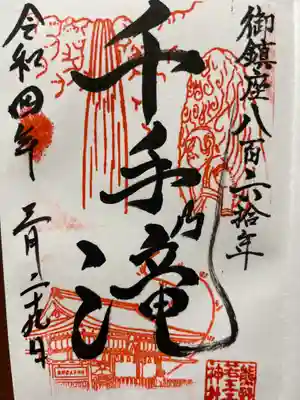 御鎮座八百六拾年
千手乃滝
令和四年
三月二十九日
熊野
若王子
神社